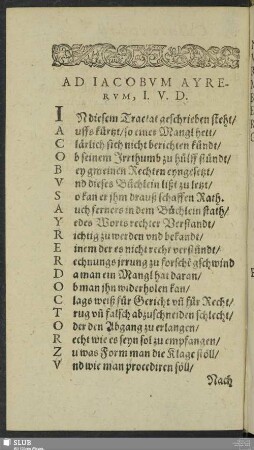 AD IACOBVM AYRE-
RVM, I. V. D.
IN diesem Tractat geschrieben steht/
Auffs kürtzt/so einer Mangl hett/
Clärlich sich nicht berichten kündt/
Ob seinem Irrthumb zu hülff stündt/
Bey gmeinen Rechten eyngesetzt/
Vnd dieses Büchlein lißt zu letzt/
So kan er jhm drauß schaffen Rath.
Auch ferners in dem Büchlein stath/
Yedes Worts rechter Verstandt/
Richtig zu werden vnd bekandt/
Einem der es nicht recht verstündt/
Rechnungs jrrung zu forschē gschwind
Da man ein Mangl hat daran/
Ob man jhn widerholen kan/
Clags weiß für Gericht vñ für Recht/
Trug vñ falsch abzuschneiden schlecht/
Oder den Abgang zu erlangen/
Recht wie es seyn sol zu empfangen/
Zu was Form man die Klage stöll/
Vnd wie man procediren söll/
Nach
SLUB